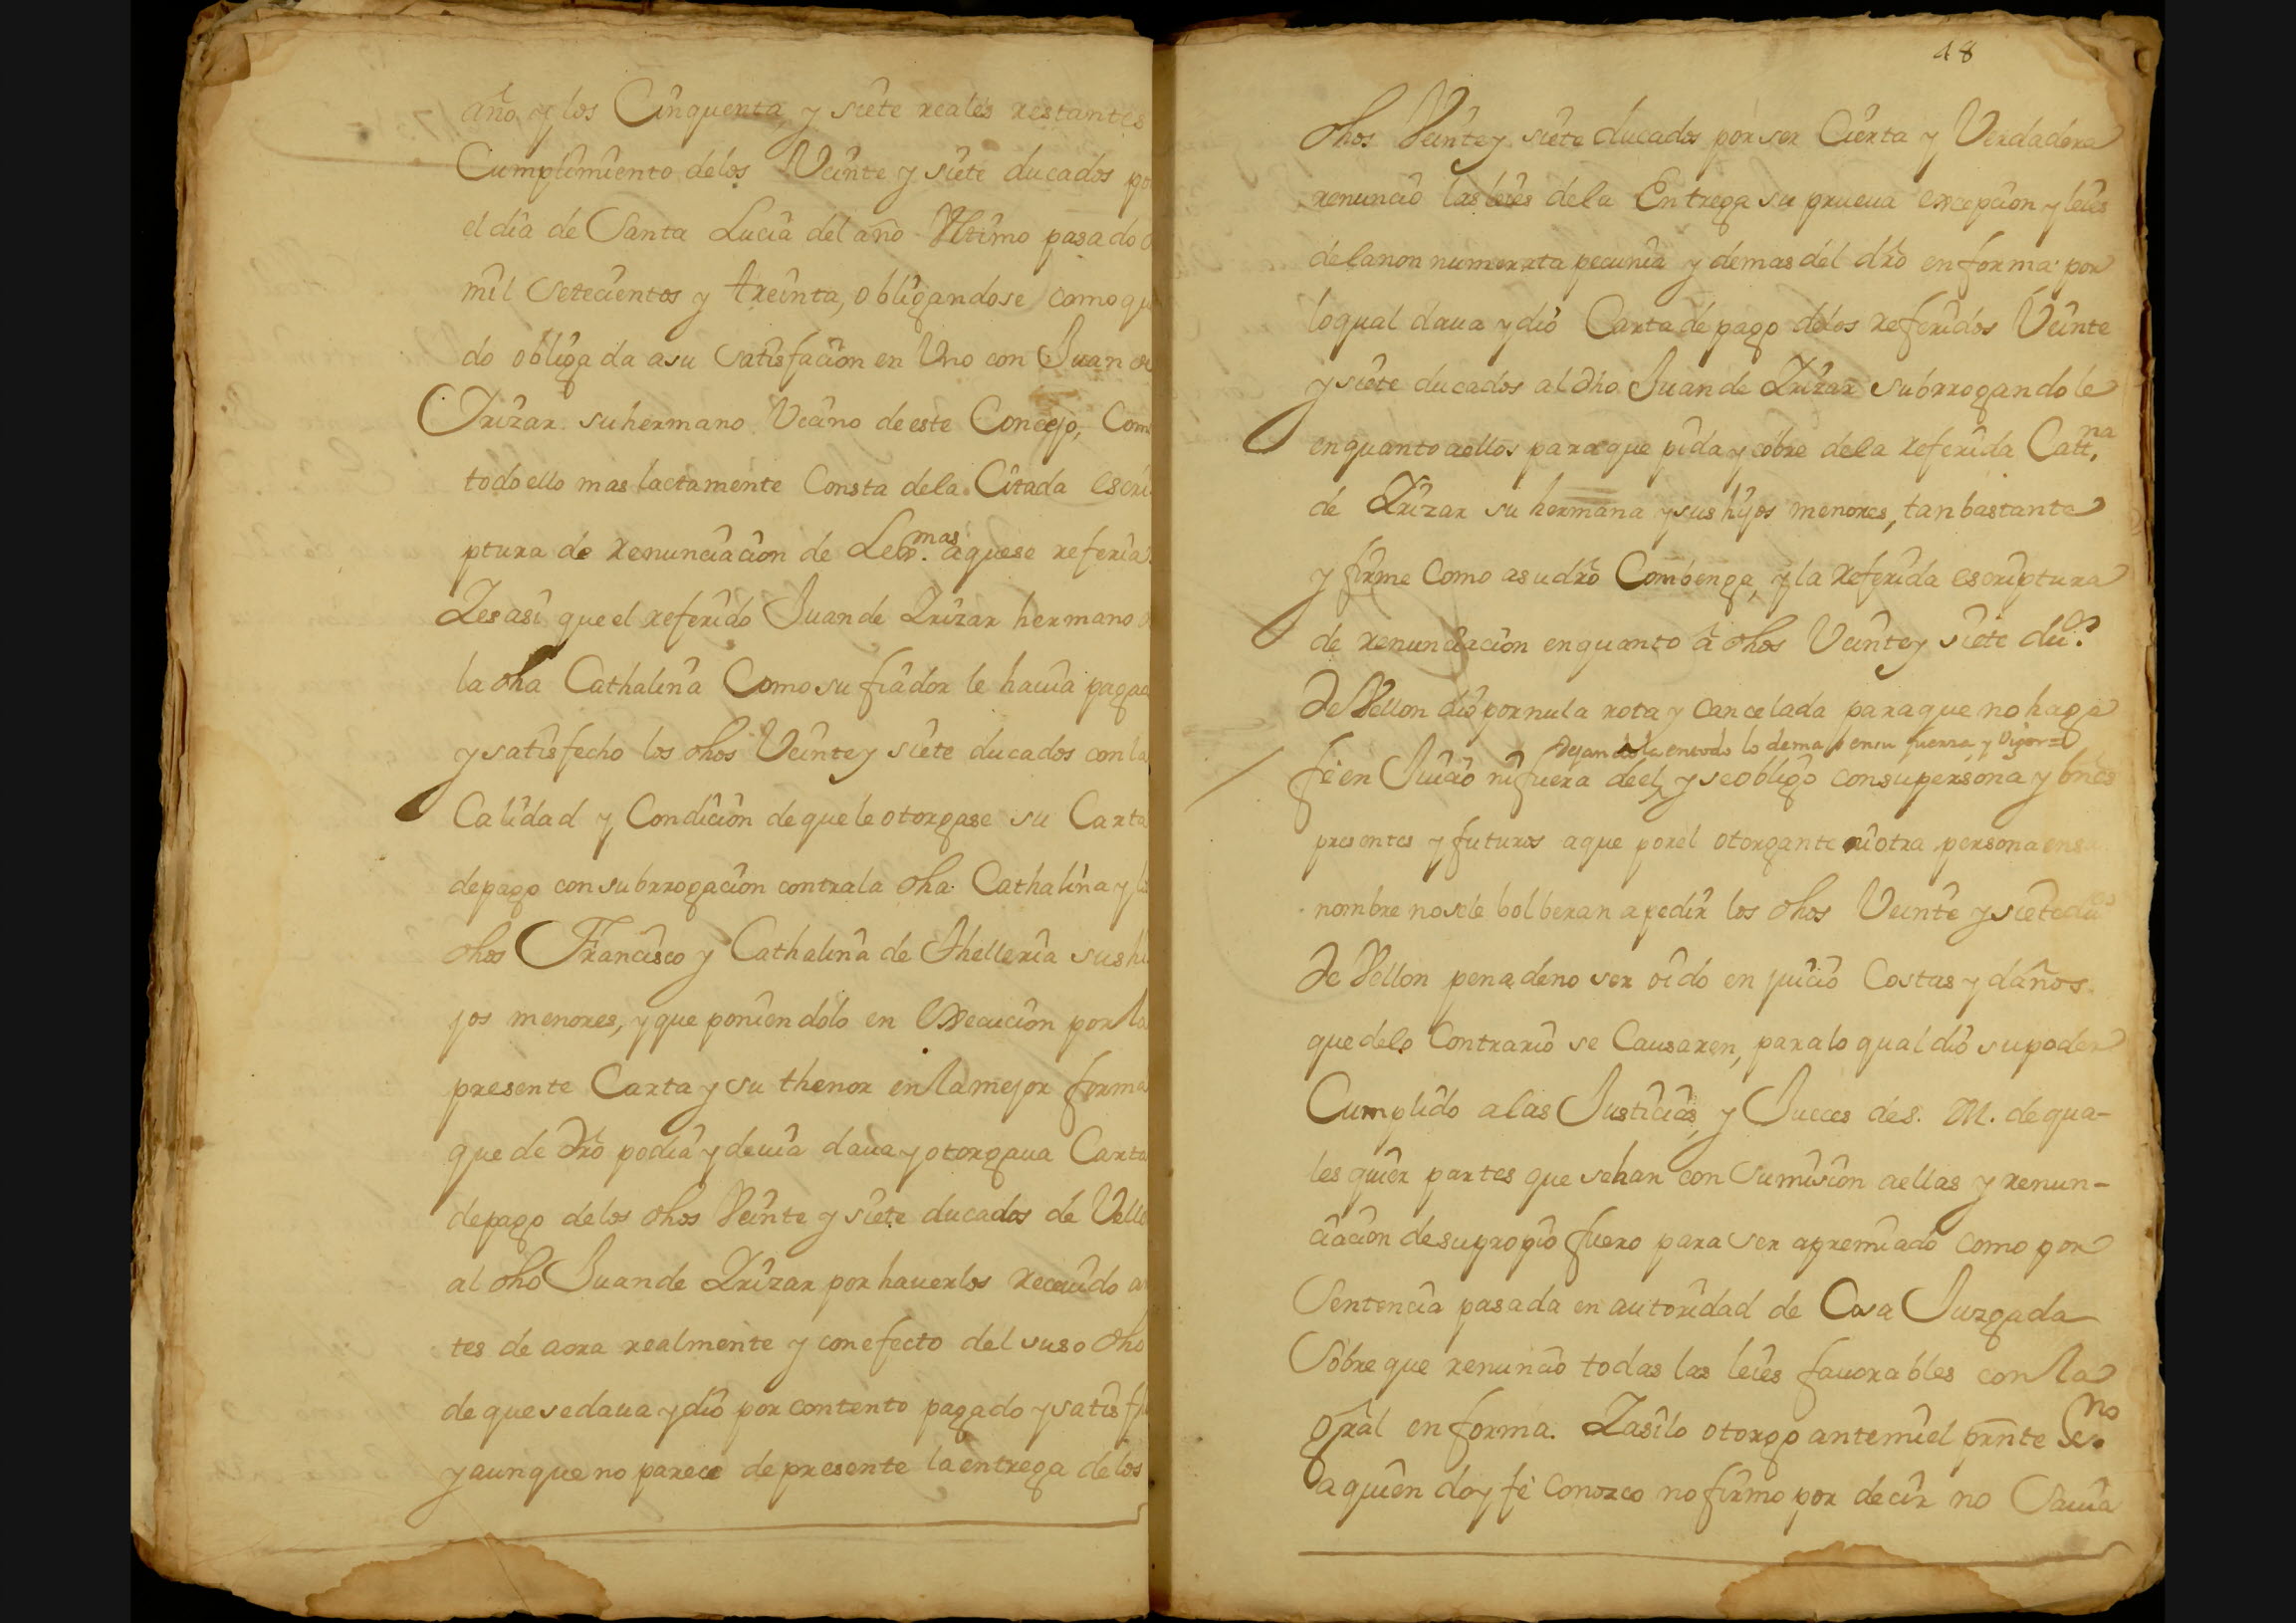 año y los Cinquenta y siete reales restantes
Cumplimiento delos Veinte y siete ducados po
el dia de Santa Lucia del año Vltimo pasado
mil Setecientos y treinta, obligandose como qu
do obligada asu Satisfacion en Vno con Juan de
Yrizar su hermano Vecino de este Concejo, Com
todo ello mas lactamente Consta dela Citada escri
ptura de renunciacion de Lex.mas aquese referia.
Yes asi que el referido Juan de Yrizar hermano
la dha Cathalina Como su fiador le hauia pagad
y satisfecho los dhos Veinte y siete ducados con la
Calidad y Condicion de que le otorgase su Carta
depago con subrrogacion contrala dha Cathalina y lo
dhos Francisco y Cathalina de Thelleria sus hi
jos menores, y que poniendolo en Execucion por la
presente Carta y su thenor en la mejor forma
que de dro podia y deuia daua y otorgaua Carta
depago delos dhos Veinte y siete ducados de Vello
al dho Juan de Yrizar por hauerlos Receuido an
tes de aora realmente y con efecto del suso dho
de que se daua y dio por contento pagado y satisfh
y aunque no parece de presente la entrega delos
48
dhos Veinte y siete ducados por ser Cierta y Verdadera
renuncio las leies dela Entrega su prueua excepcion y leies
dela non numerata pecunia y demas del dro en forma por
lo qual daua y dio Carta de pago delos referidos Veinte
y siete ducados al dho Juan de Yrizar subrrogandole
en quanto aellos paraque pida y cobre dela referida Catt.na
de Yrizar su hermana y sus hijos menores, tan bastante
y firme Como asu dro Combenga, y la referida escriptura
de renunciacion en quanto à dhos Veinte y siete du.os
De Vellon dio por nula rota y cancelada paraque no haga
Dejandola en todo lo demas en su fuerza y Vigor=
fe en Juicio ni fuera de el, y se obligo con su persona y bnes
presentes y futuros a que por el otorgante ni otra persona en su
nombre nosele bolberan a pedir los dhos Veinte y siete du.os
De Vellon pena deno ser oido en juicio Costas y daños
que delo Contrario se Causaren, para lo qual dio su poder
Cumplido alas Justicias, y Jueces de S. M. de qua-
les quier partes que sehan con Sumision aellas y renun-
ciacion de su propio fuero para ser apremiado como por
Sentencia pasada en autoridad de Cosa Juzgada
Sobre que renuncio todas las leies fauorables con la
gral en forma. Yasilo otorgo antemi el prnte Sc.no
aquien doy fe Conozco no firmo por decir no Sauia